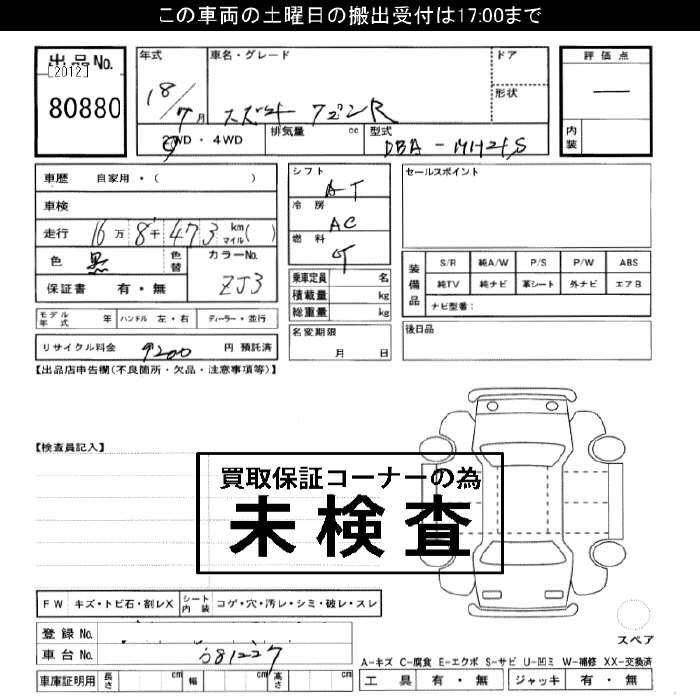 この車両の土曜日の搬出受付は17:00まで
出品No.
[2012]
80880
年式
18/7月
車名・グレード
スズキ ワゴンR
ドア
形状
評価点
―
内装
2WD・4WD
排気量 cc
型式
DBA-MH21S
車歴 自家用・( )
車検
走行 16万8千473km マイル( )
色 黒
色替
カラーNo.
ZJ3
保証書 有・無
モデル年式 年
ハンドル 左・右
ディーラー・並行
リサイクル料金 9200 円 預託済
シフト
AT
冷房
AC
燃料
G
乗車定員 名
積載量 kg
総重量 kg
名変期限
月 日
セールスポイント
装備品
S/R 純A/W P/S P/W ABS
純TV 純ナビ 革シート 外ナビ エアB
ナビ型番:
後日品
【出品店申告欄(不良箇所・欠品・注意事項等)】
【検査員記入】
買取保証コーナーの為
未検査
FW キズ・トビ石・割レX
シート内装 コゲ・穴・汚レ・シミ・破レ・スレ
登録No.
車台No. 681227
車庫証明用 長さ cm 幅 cm 高さ cm
スペア
A-キズ C-腐食 E-エクボ S-サビ U-凹ミ W-補修 XX-交換済
工具 有・無 ジャッキ 有・無